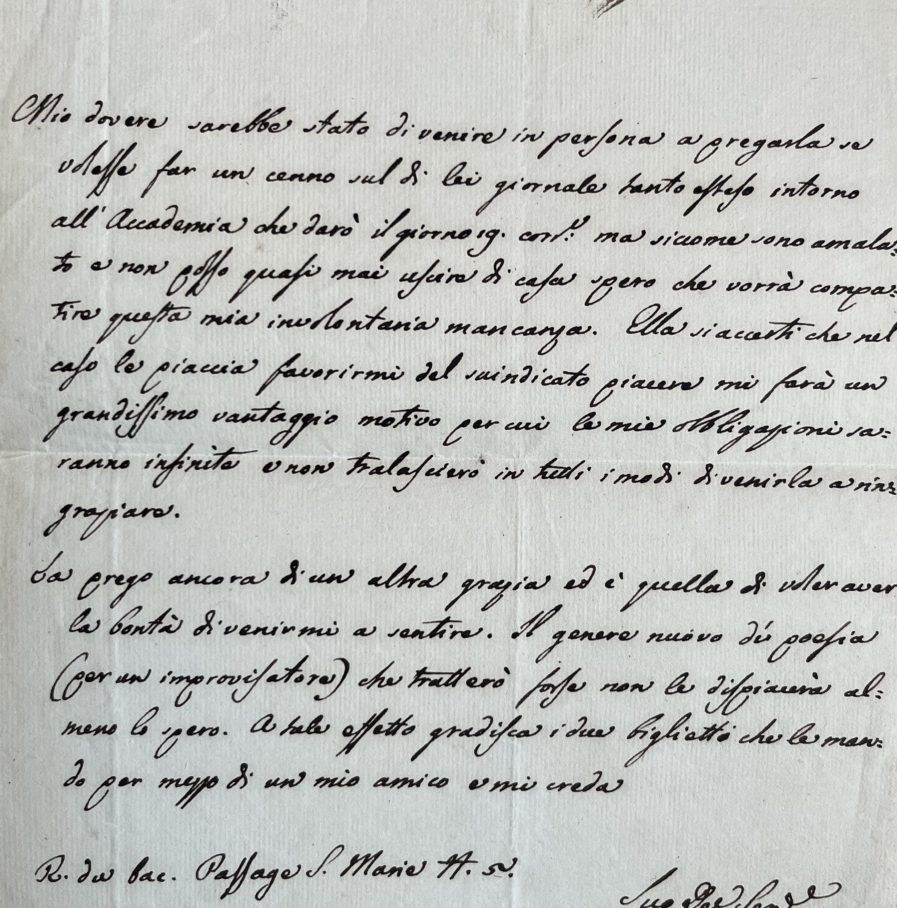 Mio dovere sarebbe stato di venire in persona a pregarla se
volesse far un cenno sul di lei giornale tanto esteso intorno
all' Accademia che darò il giorno 19. corr.e ma siccome sono amala=
to e non posso quasi mai uscire di casa spero che vorrà compa=
tire questa mia involontaria mancanza. Ella si accerti che nel
caso le piaccia favorirmi del suindicato piacere mi farà un
grandissimo vantaggio motivo per cui le mie obbligazioni sa=
ranno infinite e non tralascierò in tutti i modi di venirla a rin=
graziare.
La prego ancora di un altra grazia ed è quella di voler aver
la bontà di venirmi a sentire. Il genere nuovo di poesia
(per un improvisatore) che tratterò forse non le dispiacerà al=
meno lo spero. A tale effetto gradisca i due biglietti che le man=
do per mezzo di un mio amico e mi creda
R. du bac. Passage S. Marie
Suo